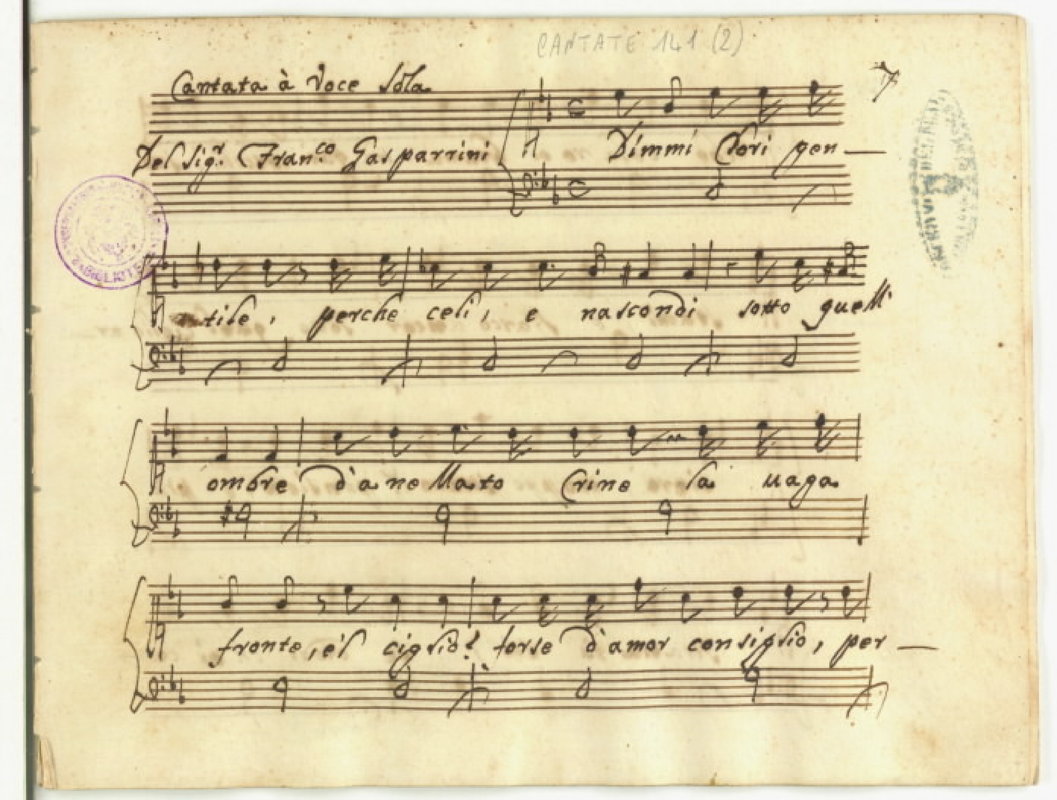 CANTATE 141 (2)
Cantata à Voce Sola
Del Sig.r Fran.co Gasparrini
Dimmi Clori gen—
tile, perche celi, e nascondi sotto quell'
ombre d'anellato Crine la uaga
fronte, e'l ciglio? forse d'amor consiglio, per—